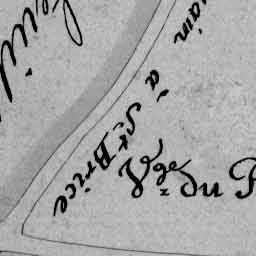 euil
ain à St. Brice
Vge du P